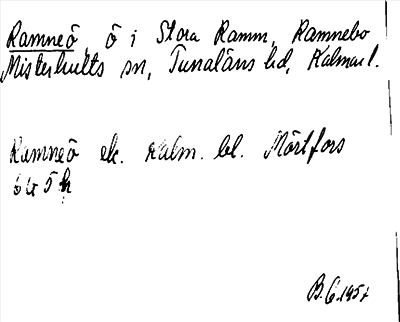 Ramneö, ö i Stora Ramm, Ramnebo
Misterhults sn, Tunaläns hd, Kalmar l.
Ramneö ek. Kalm. bl. Mörtfors
6G 5h
B.G. 1951